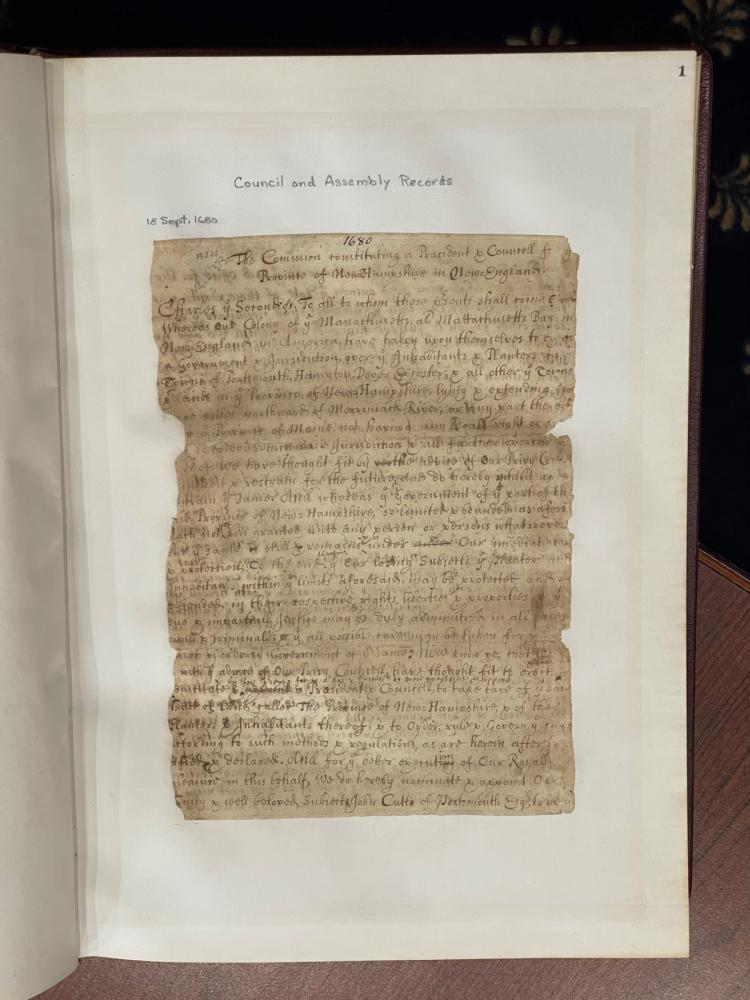 1
Council and Assembly Records
18 Sept. 1680
1680
The Comission constituting a President & Councell f
Province of New-Hampshire in New-England
Charles ye Second &c. To all to whom these prsents shall come
Whereas Our Colony of ye Massachusetts, als Mattachusetts Bay in
New-England in America, have taken upon themselves to
a Government & Jurisdiction, over ye Inhabitants & Planters in
Towns of Portsmouth, Hampton, Dover Exester, & all other ye Towns
& lands in ye Province of New-Hampshire, lying & extending fro
miles northward of Merrimack River, or any part there
ye Province of Maine, not having any legall right or
such Jurisdiction & all further exercise
of. We have thought fit by the advice of Our Privy Co
& restrain for the future, And do hereby inhibit
strain ye same. And whereas ye Government of ye part of the
Province of New-Hampshire, so limited & bounded as afores
hath not bin granted unto any person or persons whatsoever
ye same still remains under under Our imediat
& protection; To the end ye Our loving Subjects ye Planters and
Inhabitants within ye limits aforesaid, may be protected and
defended in their respective rights, liberties & properties &
due & impartiall Justice may be duly administred in all cases
civill & criminall; & ye all possible care may be taken for
orderly Government of ye same; Now know ye, that
with ye advice of Our Privy Councell, have thought fit to erect
institute a President & Councell, to take care of ye said
Tract of land called The Province of New-Hampshire, & of the
Planters & Inhabitants thereof; & to Order, rule & Govern ye
according to such methods & regulations, as are herein after
& declared. And for ye better execution of Our Royal
pleasure in this behalf, We do hereby nominate & appoint Our
trusty & well beloved Subject John Cutts of Portsmouth Esq. to be